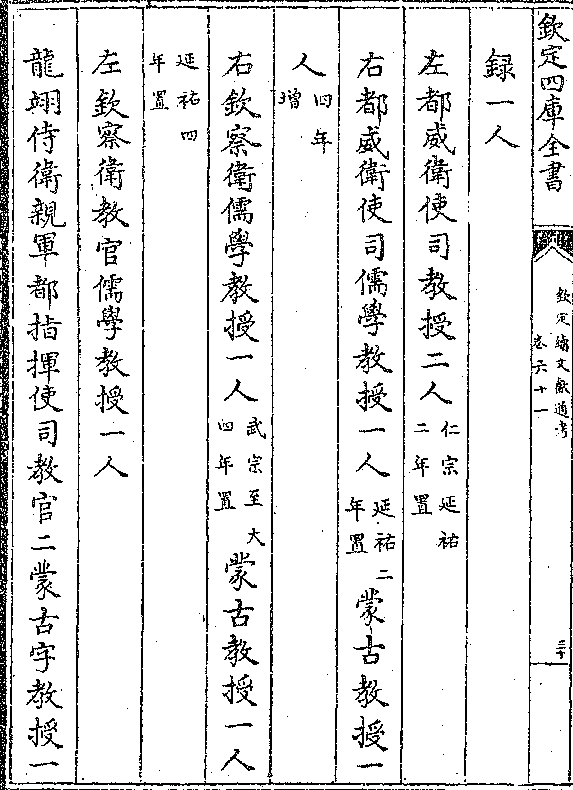 欽定四庫全書
欽定續文獻通考
卷六十一
三十
録一人
左都威衛使司教授二人仁宗延祐二年置
右都威衛使司儒學教授一人延祐二年置蒙古教授一
人四年增
右欽察衛儒學教授一人武宗至大四年置蒙古教授一人
延祐四年置
左欽察衛教官儒學教授一人
龍翊侍衛親軍都指揮使司教官二蒙古字教授一